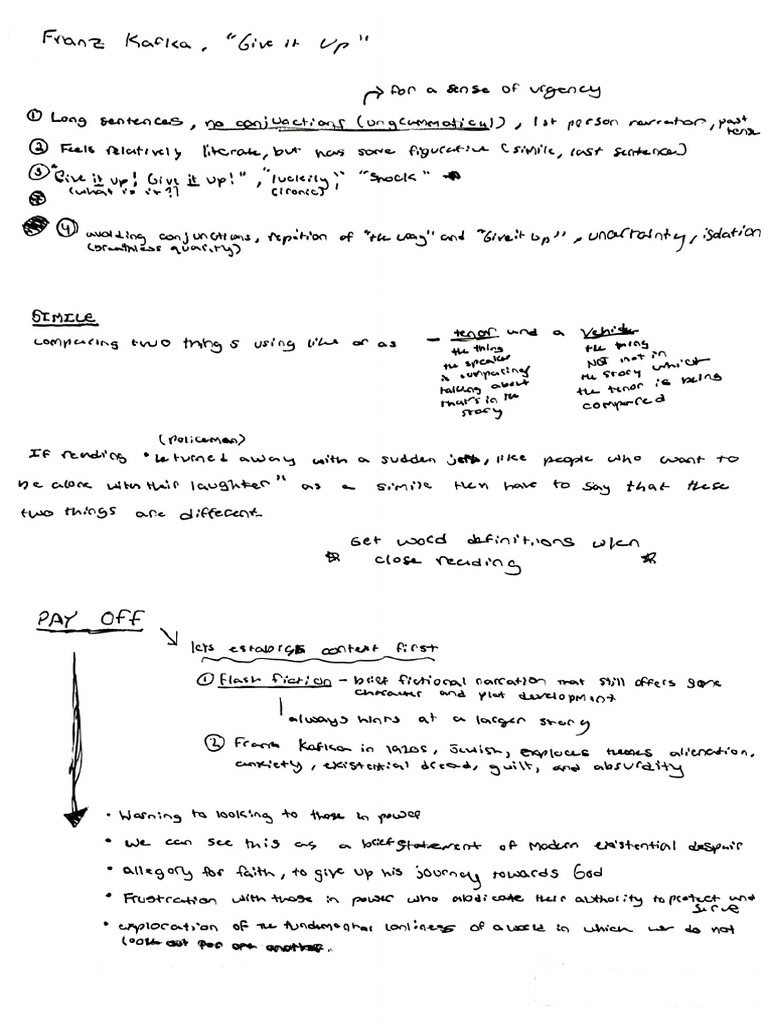 Franz Kafka, "Give it Up"
→ for a sense of urgency
① Long sentences, no conjunctions (ungrammatical), 1st person narrator, past tense
② Feels relatively literate, but has some figurative (simile, last sentence)
③ "Give it up! Give it up!", "luckily," "shock"
(what is it?) (ironic)
④ avoiding conjunctions, repition of "the way" and "Give it Up", uncertainty, isolation
(breathless quality)
SIMILE
comparing two things using like or as - tenor and a vehicle
the thing the speaker is comparing talking about that's in the story
the thing NOT not in the story which the tenor is being compared
(policeman)
If reading "he turned away with a sudden jerk, like people who want to
be alone with their laughter" as a simile then have to say that these
two things are different.
Get word definitions when
☆ close reading ☆
PAY OFF
lets establish context first
① Flash fiction - brief fictional narration that still offers some
character and plot development
always hints at a larger story
② Franz Kafka in 1920s, Jewish, explores themes alienation,
anxiety, existential dread, guilt, and absurdity
• Warning to looking to those in power
• we can see this as a brief statement of modern existential despair
• allegory for faith, to give up his journey towards God
• Frustration with those in power who abdicate their authority to protect and
serve
• exploration of the fundamental lonliness of a world in which we do not
look out for one another.